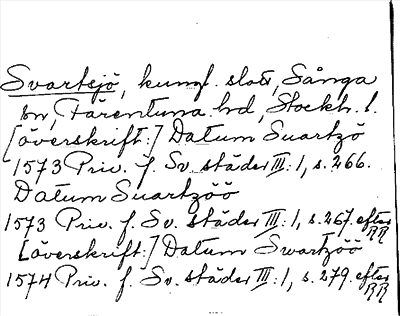 Svartsjö, kungl. slott, Sånga
sn, Färentuna hd, Stockh. l.
[överskrift:] Datum Suartzö
1573 Priv. f. Sv. städer III: 1, s. 266.
Datum Suartzöö
1573 Priv. f. Sv. städer III: 1, s. 267. efter RR
[överskrift:] Datum Swartzöö
1574 Priv. f. Sv. städer III: 1, s. 279. efter RR